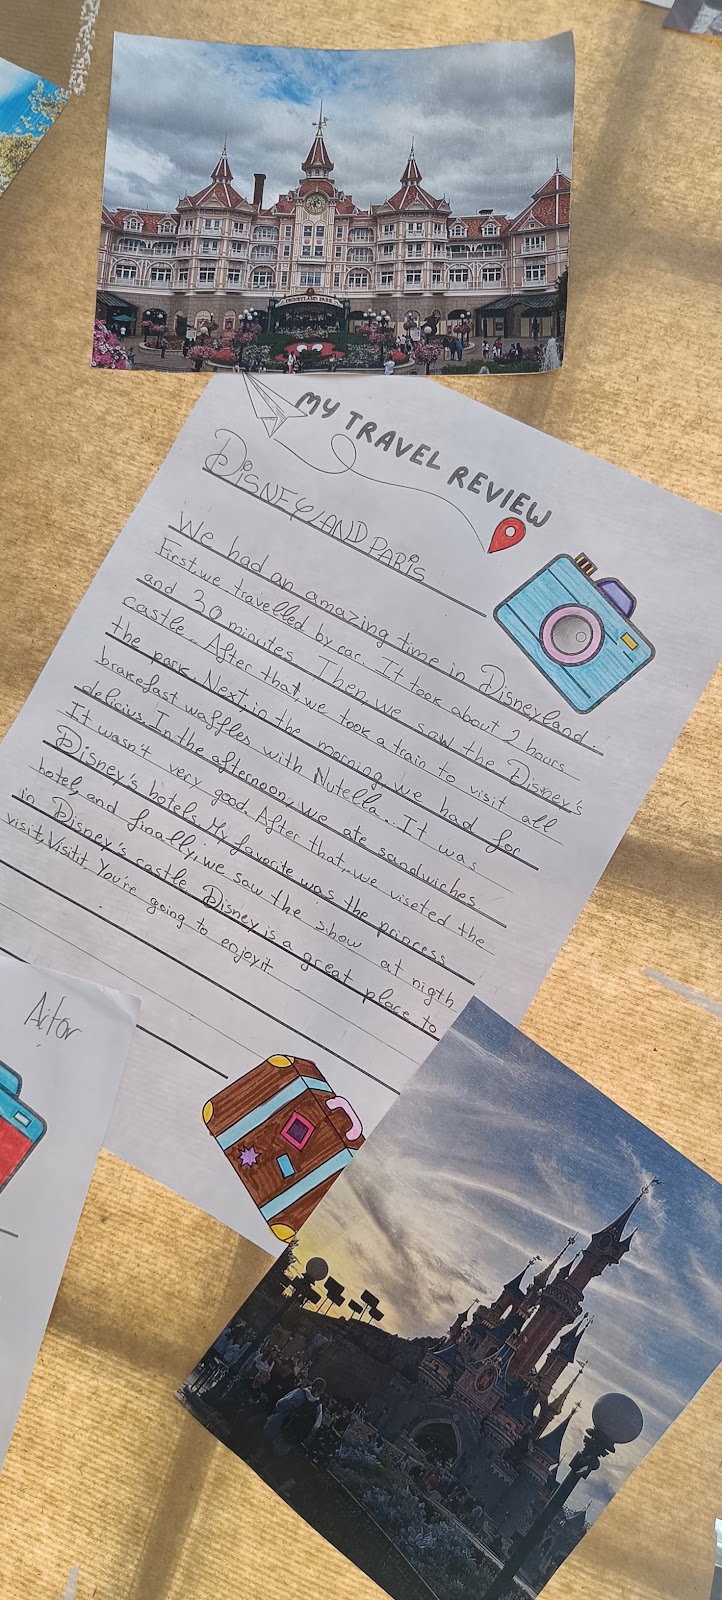 DISNEYLAND PARK
MY TRAVEL REVIEW
DISNEYLAND PARIS
We had an amazing time in Disneyland.
First, we travelled by car. It took about 2 hours
and 30 minutes. Then, we saw the Disney's
castle. After that, we took a train to visit all
the park. Next, in the morning, we had for
brakefast waffles with Nutella. It was
delicius. In the afternoon, we ate sandwiches.
It wasn't very good. After that, we viseted the
Disney's hotels. My favorite was the princess
hotel, and finally, we saw the show at nigth
in Disney's castle. Disney is a great place to
visit. Visitit. You're going to enjoyit
Aitor